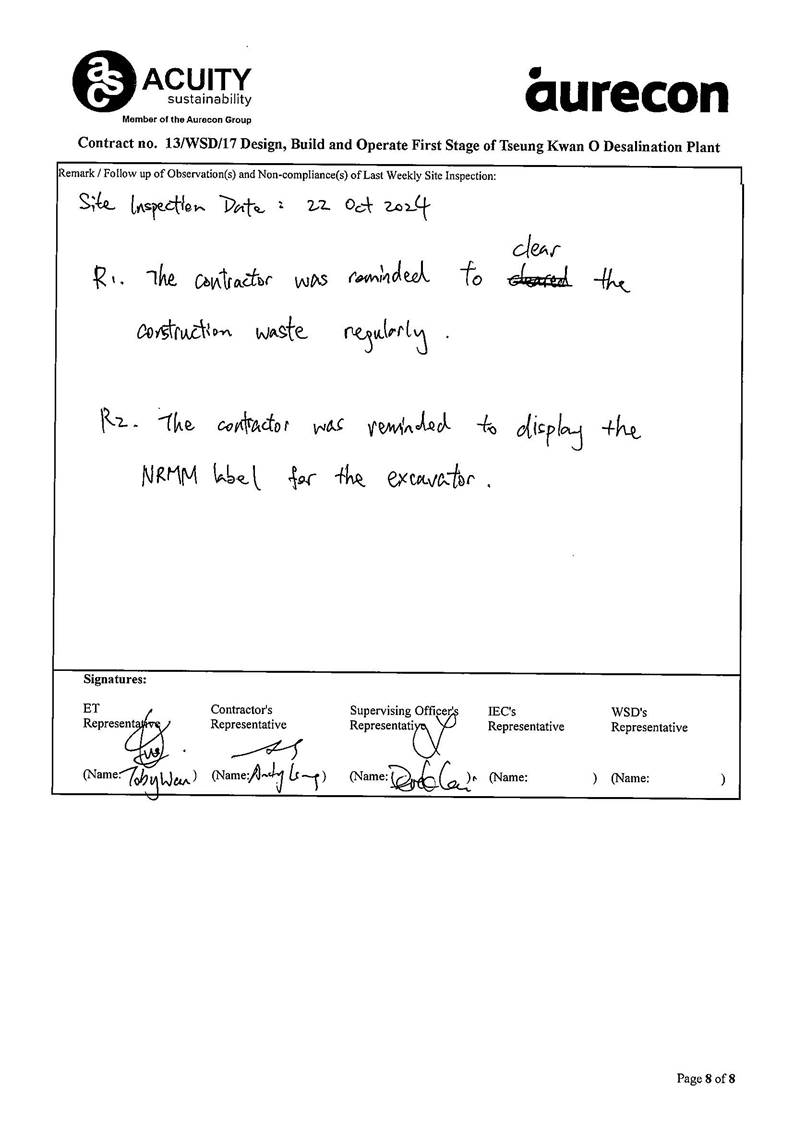 asc ACUITY
sustainability
Member of the Aurecon Group
aurecon
Contract no. 13/WSD/17 Design, Build and Operate First Stage of Tseung Kwan O Desalination Plant
Remark / Follow up of Observation(s) and Non-compliance(s) of Last Weekly Site Inspection:
Site Inspection Date : 22 Oct 2024
clear
R1. The contractor was reminded to cleared the
construction waste regularly.
R2. The contractor was reminded to display the
NRMM label for the excavator.
Signatures:
ET Contractor's Supervising Officer's IEC's WSD's
Representative Representative Representative Representative Representative
(Name: Toby Wan) (Name: Andy ) (Name: ) (Name: ) (Name: )
Page 8 of 8